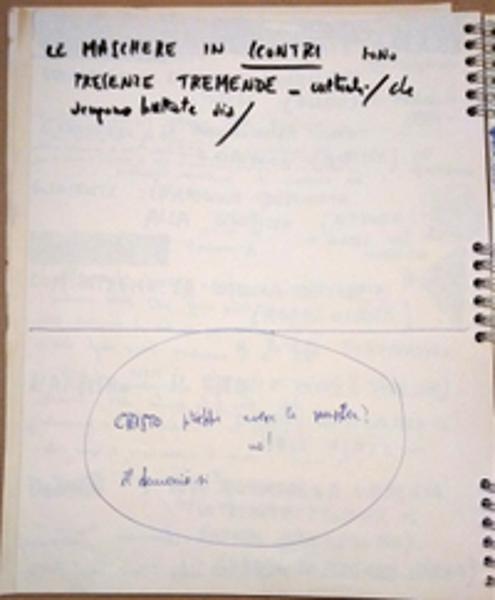 LE MASCHERE IN SCONTRI sono
PRESENZE TREMENDE - / che
vengono buttate via /
CRISTO avere la maschera?
no!
Il demonio si